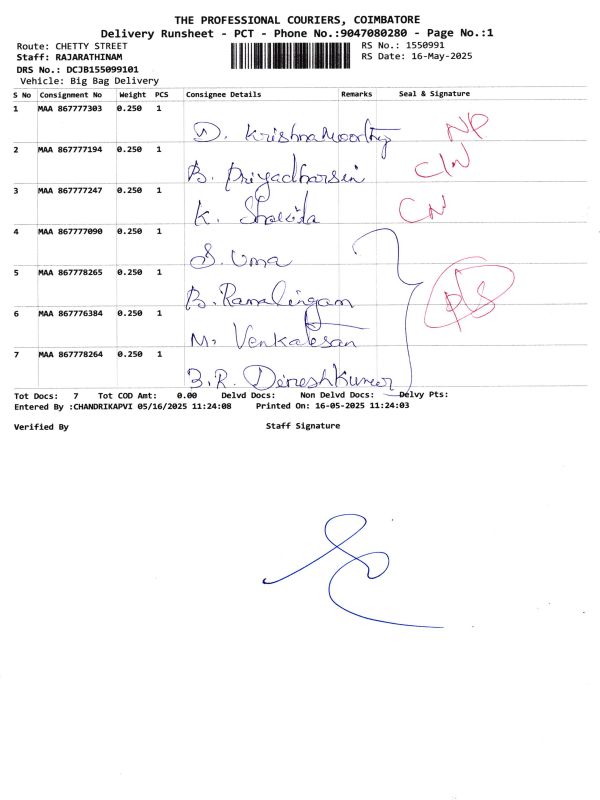 THE PROFESSIONAL COURIERS, COIMBATORE
Delivery Runsheet - PCT - Phone No.:9047080280 - Page No.:1
Route: CHETTY STREET RS No.: 1550991
Staff: RAJARATHINAM RS Date: 16-May-2025
DRS No.: DCJB155099101
Vehicle: Big Bag Delivery
S No Consignment No Weight PCS Consignee Details Remarks Seal & Signature
1 MAA 867777303 0.250 1
D. Krishnamoorthy NP
2 MAA 867777194 0.250 1
B. Priyadharsini CIN
3 MAA 867777247 0.250 1
K. Shakila CN
4 MAA 867777090 0.250 1
S. Uma
5 MAA 867778265 0.250 1
B. Ramalingam
6 MAA 867776384 0.250 1
M. Venkatesan
7 MAA 867778264 0.250 1
B.R. Dineshkumar
Tot Docs: 7 Tot COD Amt: 0.00 Delvd Docs: Non Delvd Docs: Delvy Pts:
Entered By :CHANDRIKAPVI 05/16/2025 11:24:08 Printed On: 16-05-2025 11:24:03
Verified By Staff Signature